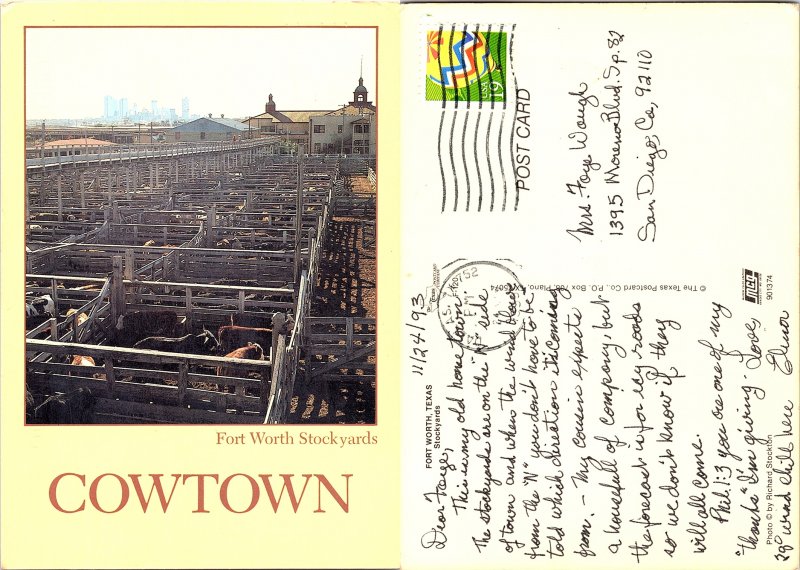 Fort Worth Stockyards
COWTOWN
USA 19
POST CARD
Mrs. Faye Waugh
1395 Morena Blvd. Sp. 82
San Diego, Ca, 92110
752
© The Texas Postcard Co., P.O. Box 708, Plano, 75074
901374
FORT WORTH, TEXAS
Stockyards
11/24/93
Dear Faye,
This is my old home town.
The stockyards are on the "N" side
of town and when the wind blows
from the "N" you don't have to be
told which direction it's coming
from. - My cousin expects
a housefull of company, but
the forecast is for icy roads
so we don't know if they
will all come.
Phil. 1:3 you are one of my
"thanks" I'm giving. Love
Elinor
29° wind chill here
Photo © by Richard Stockton